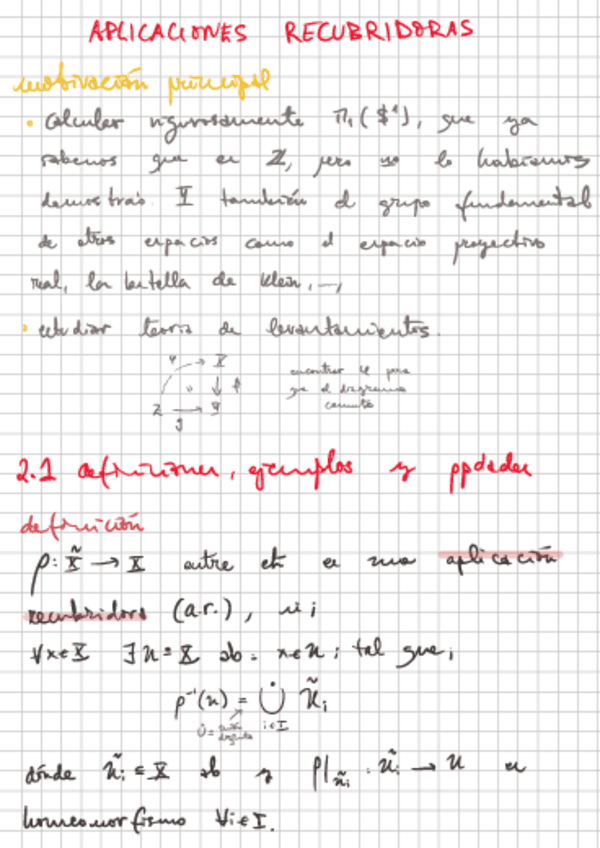 APLICACIONES RECUBRIDORAS
motivación principal
• calcular rigurosamente Π₁($¹), que ya
sabemos que es ℤ, pero no lo habíamos
demostrado. Y también el grupo fundamental
de otros espacios como el espacio proyectivo
real, la botella de Klein, ...
• estudiar teoría de levantamientos.
φ X
encontrar φ para
↓ f
que el diagrama
Z → Y
conmute
g
2.1 definiciones, ejemplos y ppdades
definición
p: X̃ → X entre et es una aplicación
recubridora (a.r.), si:
∀x∈X ∃U⊆X ab. x∈U; tal que:
p⁻¹(U) = ⋃̇ Ũᵢ
i∈I
∪̇ = unión disjunta
dónde Ũᵢ ⊆ X̃ ab y p|Ũᵢ : Ũᵢ → U es
homeomorfismo ∀i∈I.